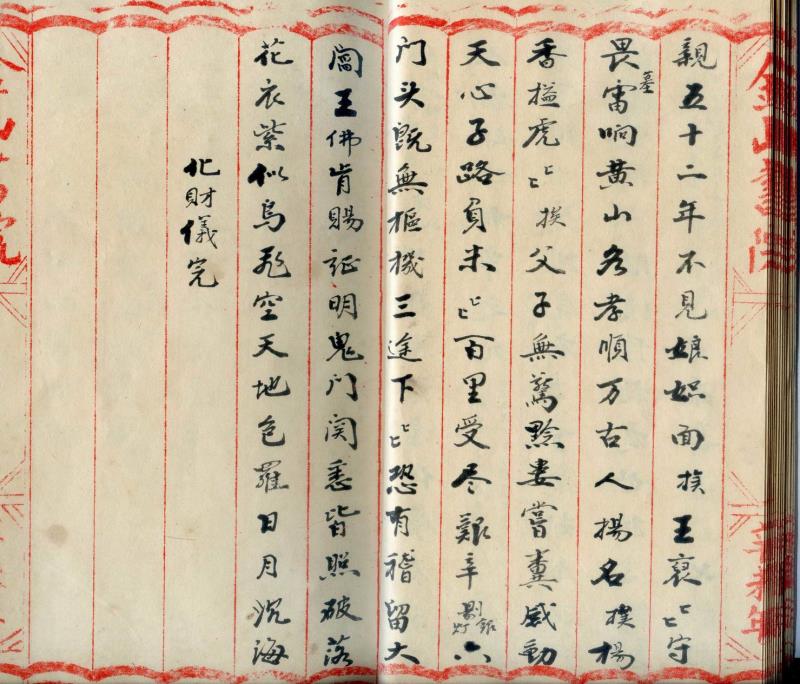 金山書院
親五十二年不見娘面挨王裒〻〻守
墓
畏雷响黄山名孝順万古人揚名撲楊
香搤虎〻〻挨父子無驚黔婁嘗糞感動
天心子路負米〻〻百里受尽艱辛剔銀灯六
门头既無樞機三途下〻〻恐有稽留大
閻王佛肯賜証明鬼门関悉皆照破落
花衣紫似鳥飛空天地色羅日月沉海
化財儀完